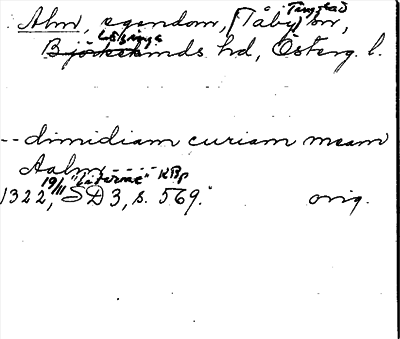 Tingstad
Alm, egendom, (Täby) sn,
Lösings
Björkekinds hd, Österg. l.
-- dimidiam curiam meam
Aalm - - - -
19/11 KBp
1322, SD 3, s. 569. orig.